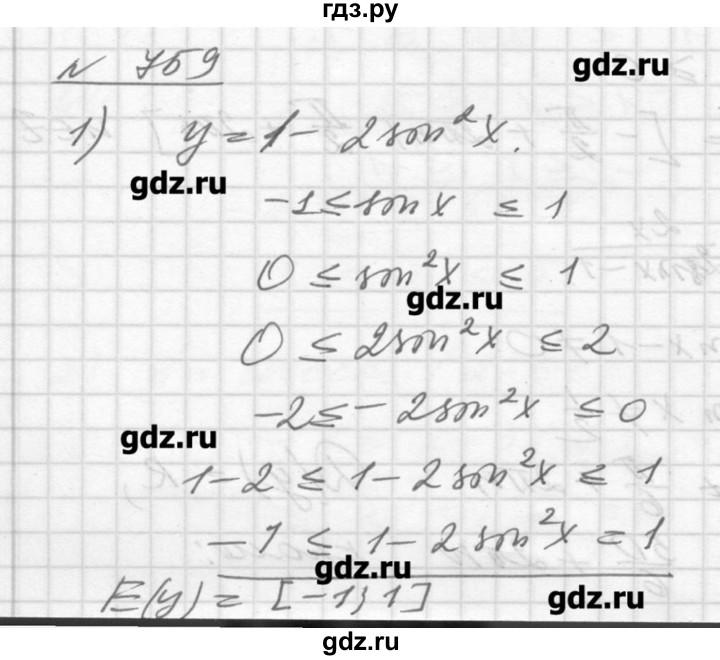 гдз.ру
№ 759
gdz.ru
1) y = 1 - 2 sin²x.
gdz.ru
-1 ≤ sin x ≤ 1
0 ≤ sin²x ≤ 1
gdz.ru
0 ≤ 2sin²x ≤ 2
-2 ≤ - 2sin²x ≤ 0
gdz.ru
1 - 2 ≤ 1 - 2 sin²x ≤ 1
-1 ≤ 1 - 2 sin²x = 1
gdz.ru
E(y) = [-1; 1]
gdz.ru
gdz.ru